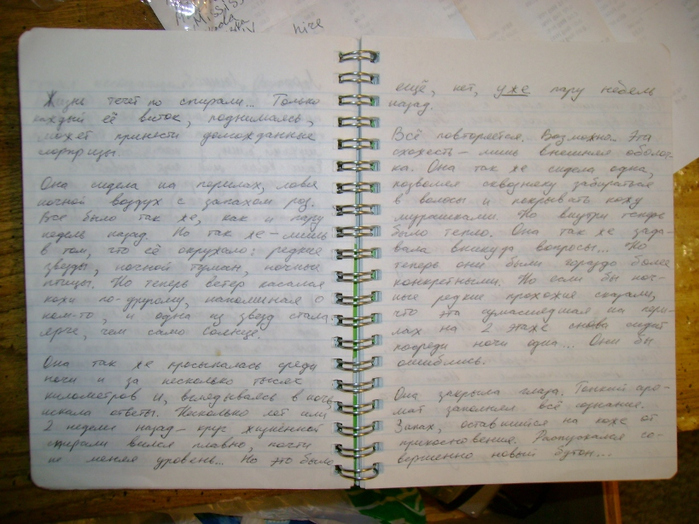 Missis
nice
Жизнь течёт по спирали... Только
каждый её виток, поднимаясь,
может принести долгожданные
сюрпризы.
Она сидела на перилах, ловя
ночной воздух с запахом роз.
Всё было так же, как и пару
недель назад. Но так же – лишь
в том, что её окружало: редкие
звезды, ночной туман, ночные
птицы. Но теперь ветер касался
кожи по-другому, напоминая о
ком-то, и одна из звезд стала
ярче, чем само солнце.
Она так же просыпалась среди
ночи и за несколько тысяч
километров и, вглядываясь в ночь
искала ответы. Несколько лет или
2 недели назад – круг жизненной
спирали вился плавно, почти
не меняя уровень... Но это было
ещё, нет, уже пару недель
назад.
Всё повторяется. Возможно... Эта
схожесть – лишь внешняя оболоч-
ка. Она так же сидела одна,
позволяя сквозняку забираться
в волосы и покрывать кожу
мурашками. Но внутри теперь
было тепло. Она так же зада-
вала вникуда вопросы... Но
теперь они были гораздо более
конкретными. Но если бы ноч-
ные редкие прохожие сказали,
что эта сумасшедшая на пери-
лах на 2 этаже снова сидит
посреди ночи одна... Они бы
ошиблись.
Она закрыла глаза. Тонкий аро-
мат заполнял всё сознание.
Запах, оставшийся на коже от
прикосновения. Распускался со-
вершенно новый бутон...